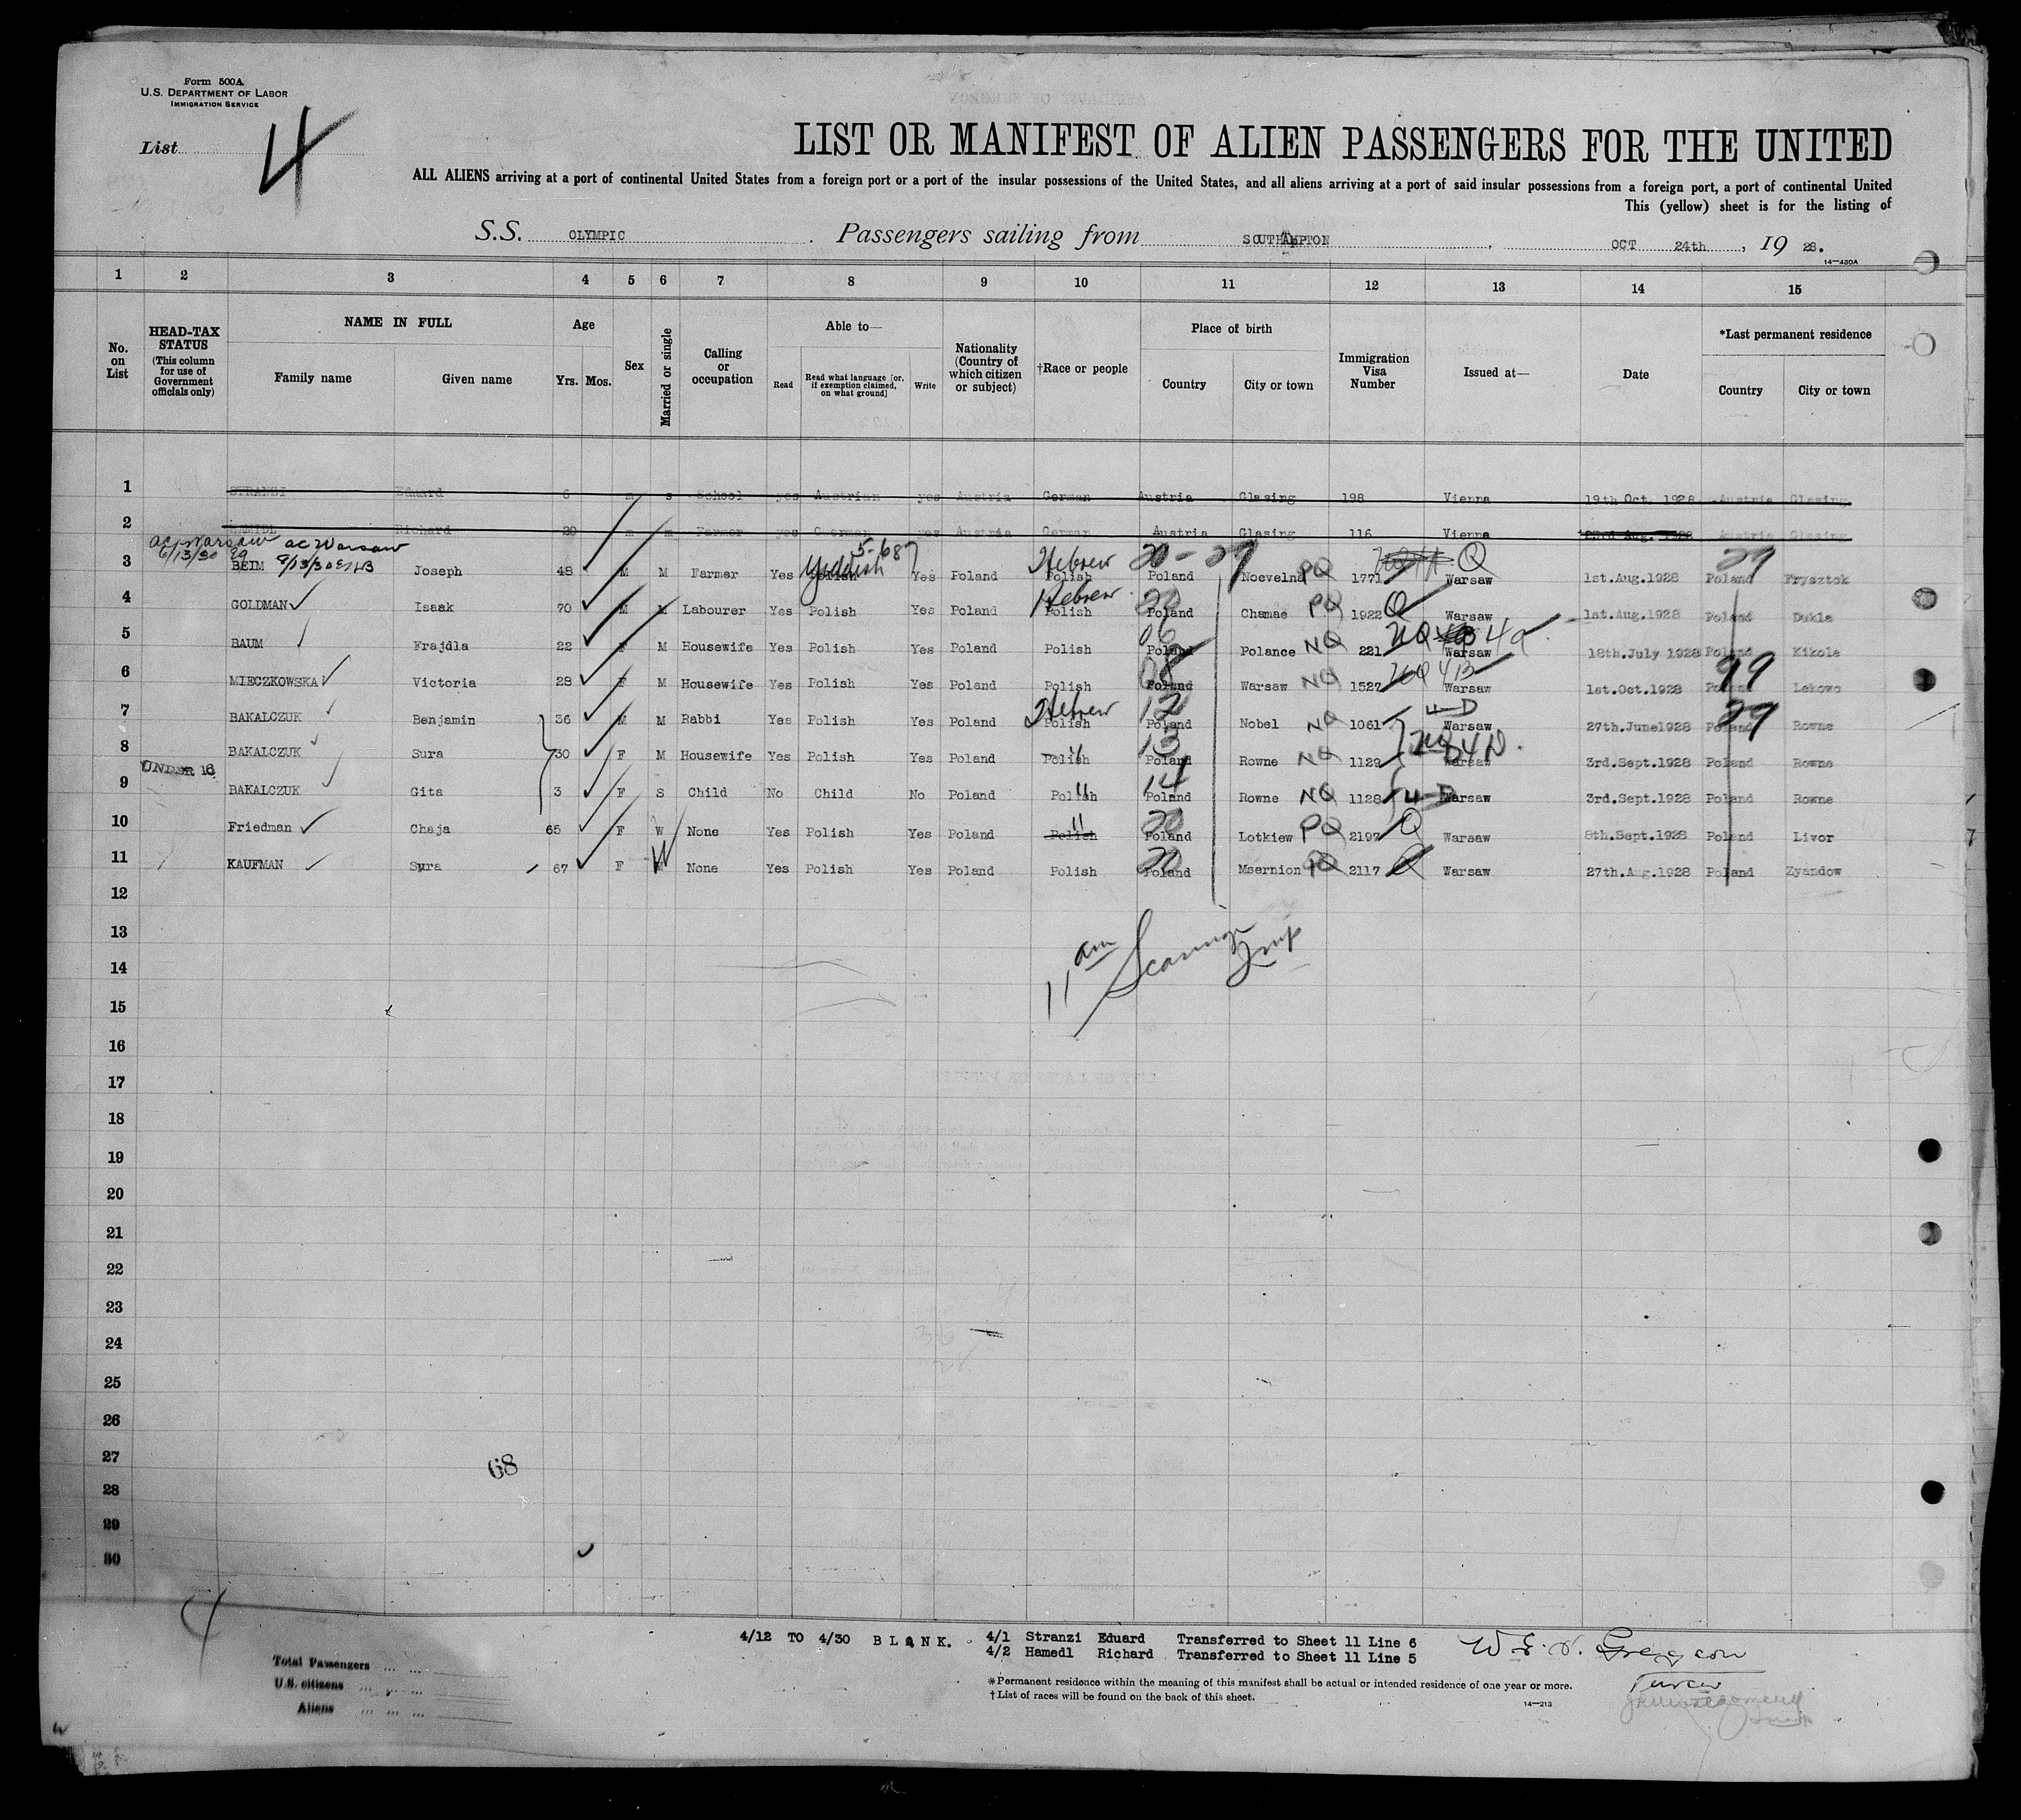 Form 500A
U.S. DEPARTMENT OF LABOR
IMMIGRATION SERVICE
List 4
LIST OR MANIFEST OF ALIEN PASSENGERS FOR THE UNITED
ALL ALIENS arriving at a port of continental United States from a foreign port or a port of the insular possessions of the United States, and all aliens arriving at a port of said insular possessions from a foreign port, a port of continental United
This (yellow) sheet is for the listing of
S.S. OLYMPIC. Passengers sailing from SOUTHAMPTON, OCT 24th, 19 28.
14-430A
1 2 3 4 5 6 7 8 9 10 11 12 13 14 15
No. on List
HEAD-TAX STATUS (This column for use of Government officials only)
NAME IN FULL Family name Given name
Age Yrs. Mos.
Sex
Married or single
Calling or occupation
Able to— Read Read what language [or, if exemption claimed, on what ground] Write
Nationality (Country of which citizen or subject)
†Race or people
Place of birth Country City or town
Immigration Visa Number
Issued at—
Date
*Last permanent residence Country City or town
1 STRANZI Eduard 6 m s School yes Austrian yes Austria German Austria Glasing 198 Vienna 19th Oct. 1928 Austria Glasing
2 Richard m m Farmer yes German yes Austria German Austria Glasing 116 Vienna 23rd Aug. 1928 Austria Glasing
ac Warsaw 6/13/30 ac Warsaw
5-687
3 BEIM Joseph 48 M M Farmer Yes Polish Yiddish Yes Poland Polish Hebrew Poland 20-29 Nocvelna PQ 1771 Q Warsaw 1st.Aug.1928 Poland 29 Frysztok
4 GOLDMAN Isaak 70 M M Labourer Yes Polish Yes Poland Polish Hebrew Poland 20 Chamae PQ 1922 Q Warsaw 1st.Aug.1928 Poland Dukla
5 BAUM Frajdla 22 F M Housewife Yes Polish Yes Poland Polish Poland 06 Polance NQ 221 NQ 4a Warsaw 18th.July 1928 Poland Kikole
6 MIECZKOWSKA Victoria 28 F M Housewife Yes Polish Yes Poland Polish Poland 08 Warsaw NQ 1527 NQ 4B Warsaw 1st.Oct.1928 Poland 99 Lekowo
7 BAKALCZUK Benjamin 36 M M Rabbi Yes Polish Yes Poland Polish Hebrew Poland 12 Nobel NQ 1061 4-D Warsaw 27th.June1928 Poland 29 Rowne
8 BAKALCZUK Sura 30 F M Housewife Yes Polish Yes Poland Polish " Poland 13 Rowne NQ 1129 NQ 4D. Warsaw 3rd.Sept.1928 Poland Rowne
UNDER 16
9 BAKALCZUK Gita 3 F S Child No Child No Poland Polish " Poland 14 Rowne NQ 1128 4-D Warsaw 3rd.Sept.1928 Poland Rowne
10 Friedman Chaja 65 F W None Yes Polish Yes Poland Polish " Poland 20 Lotkiew PQ 2197 Q Warsaw 8th.Sept.1928 Poland Livor
11 KAUFMAN Syra 67 F W None Yes Polish Yes Poland Polish Poland 20 Msernion PQ 2117 Q Warsaw 27th.Aug.1928 Poland Zyandow
12
11 am
13
Insp
14
15
16
17
18
19
20
21
22
23
24
25
26
27
68
28
29
30
4/12 TO 4/30 BLANK.
4/1 Stranzi Eduard Transferred to Sheet 11 Line 6
4/2 Hamedl Richard Transferred to Sheet 11 Line 5
Total Passengers
U.S. citizens
Aliens
*Permanent residence within the meaning of this manifest shall be actual or intended residence of one year or more.
†List of races will be found on the back of this sheet.
14-213
Purser